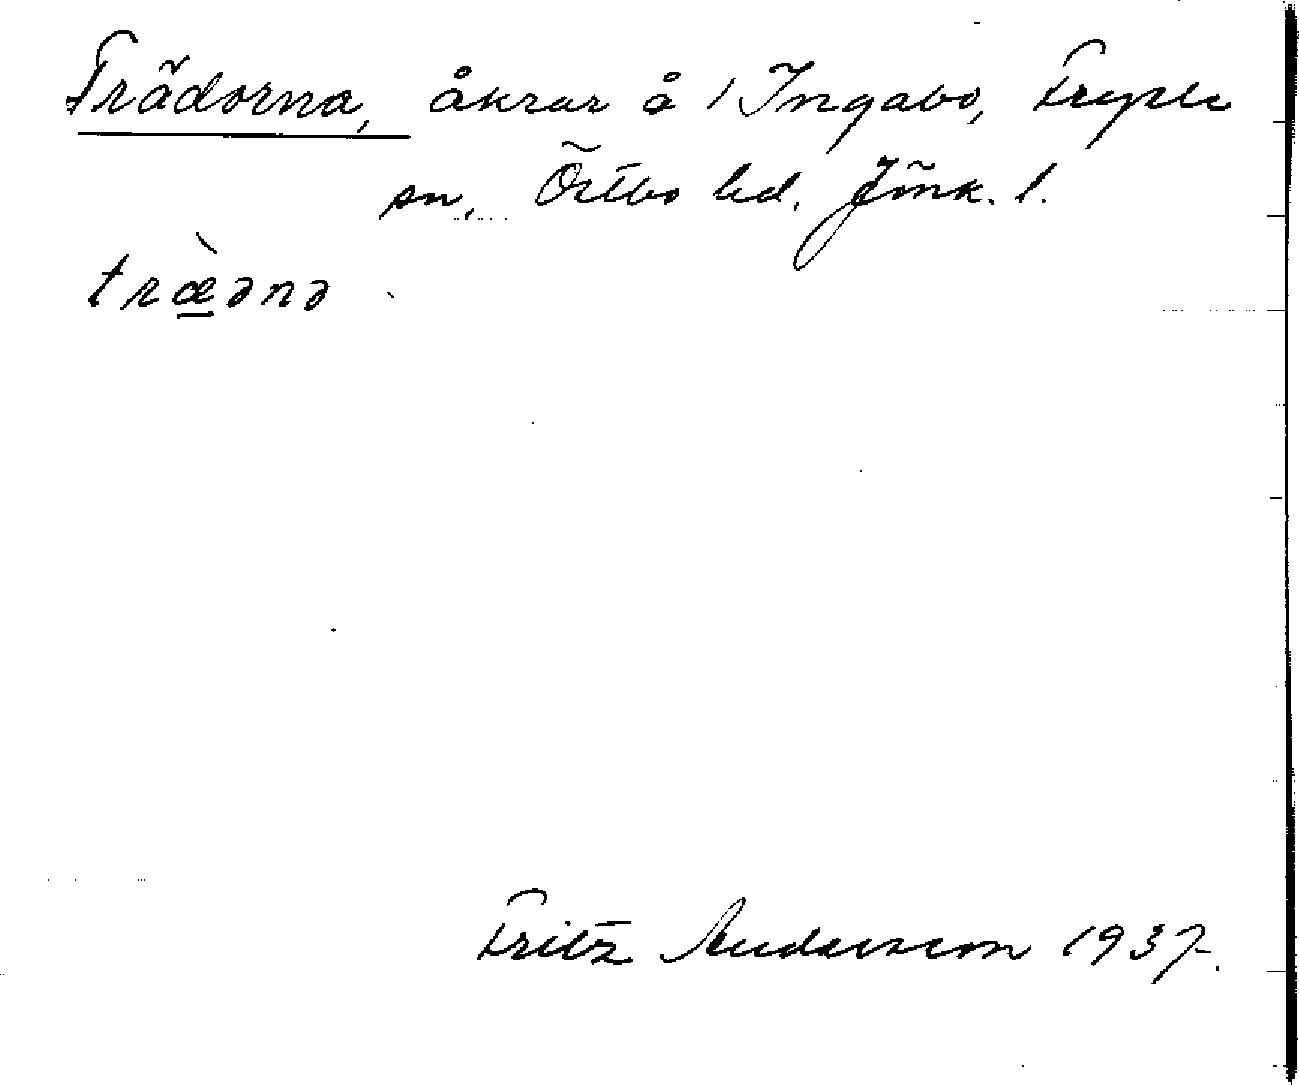 Trädorna, åkrar å 1 Ingabo, Fryele
sn, Östbo hd. Jönk. l.
træ̠̀ənə
Fritz Andersson 1937.